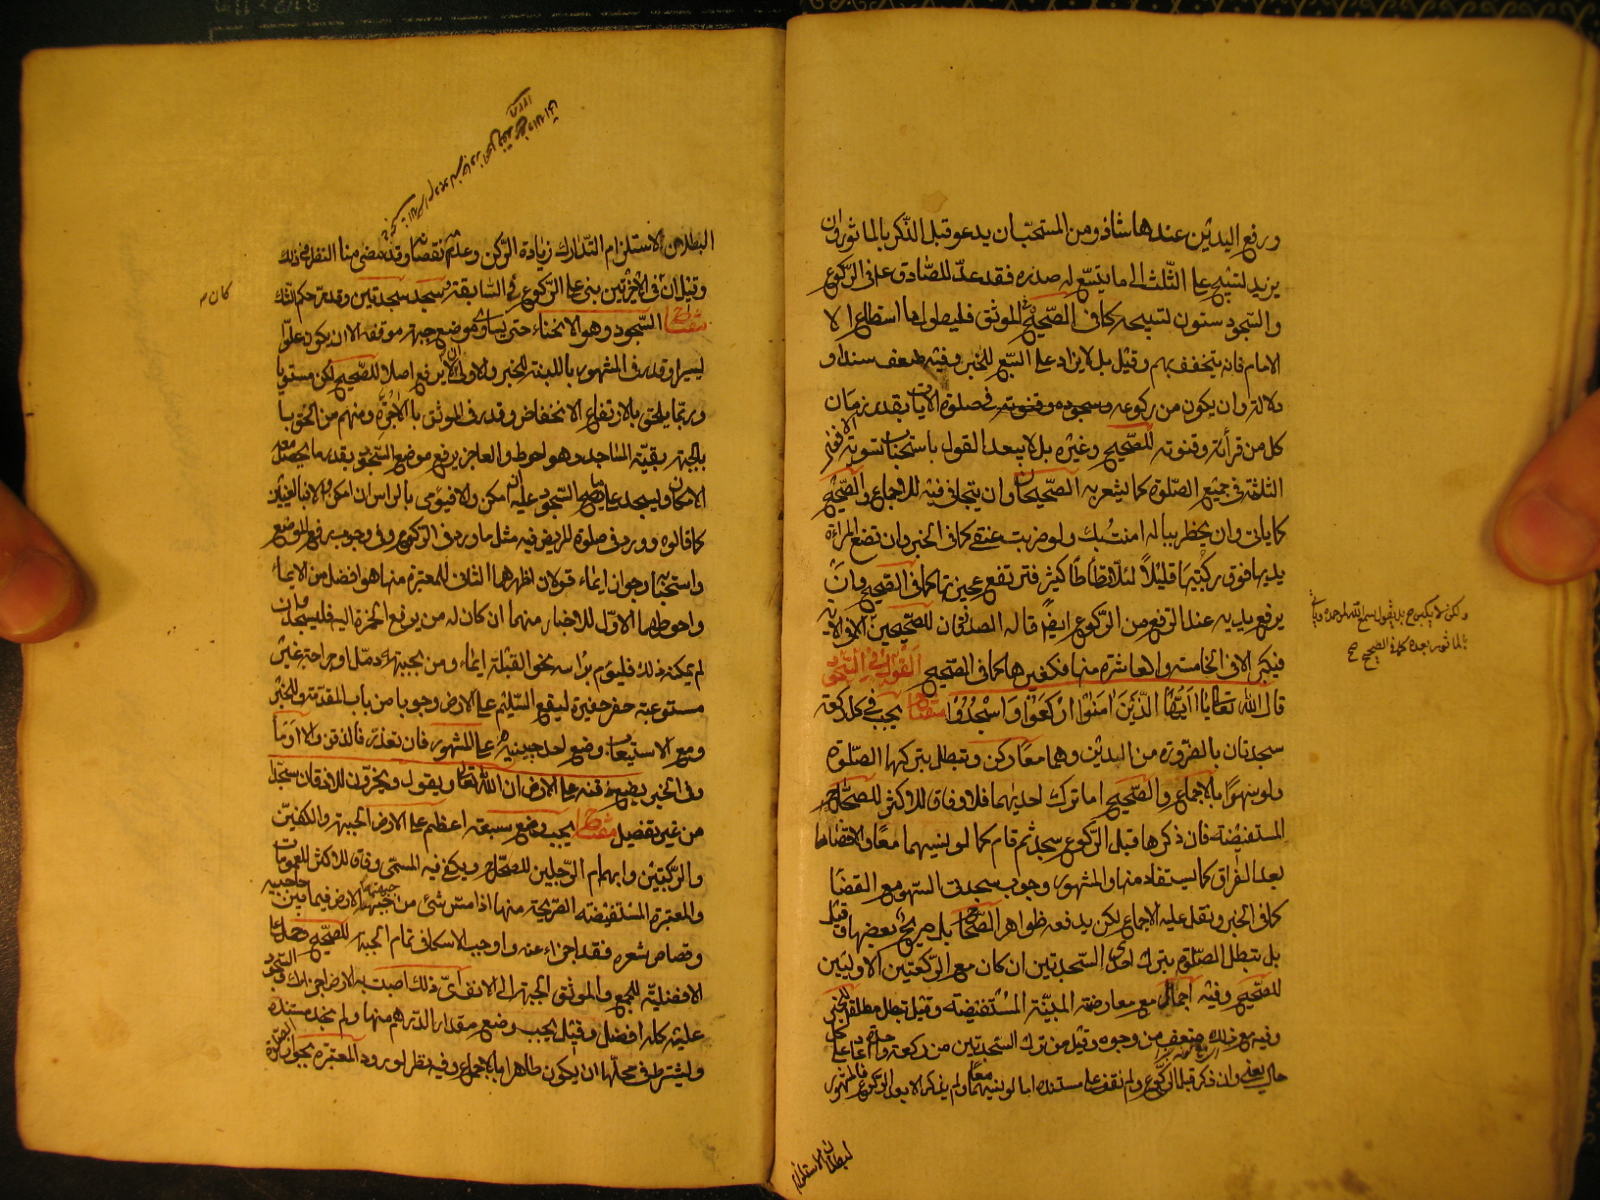 ورفع اليدين عندها شاذ ومن المستحبّ ان يدعو قبل الذّكر بالماثور وان
يزيد لتسبيح على الثّلث الى ما يتّسع له صدره فقد عدّ للصّادق ع فى الرّكوع
والسّجود ستون تسبيحة كما فى الصّحيح وفى الموثق فليطول ما استطاع الا
الامام فانه يتخفف بهم وقيل بل لا يزاد على السّبع للخبر وفيه ضعف سندا و
دلالة وان يكون من ركوعه وسجوده وقنوته فى صلوة الآيات بقدر زمان
كل من قرأته وقنوته للصّحيح وغيره بل لا يبعد القول باستحباب تسوية الافعال
الثلثة فى جميع الصّلوة كما يشعر به الصّحيحان وان يتجافى فيه للاجماع والصّحيح
كما ياتى وان يخطر بباله امنت بك ولو ضربت عنقى كما فى الخبر وان تضع المرأة
يديها فوق ركبتيها قليلاً لئلا تطأطأ كثيرا فترتفع عجيزتها كما فى الصّحيح وان
يرفع يديه عند الرّفع من الرّكوع ايضًا قاله الصدوقان للصّحيحين
فيكبر الا فى الخامسة والعاشرة منها كما فى الصّحيح القول فى السّجود
قال الله تعالى يا اَيّهَا الّذينَ اٰمَنُوا ارْكَعُوا وَاسْجُدُوا مفتاح يجب فى كل ركعة
سجدتان بالضّرورة من الدين وهما معا ركن وتبطل بتركهما الصّلوة
ولو سهوًا بالاجماع والصّحيح اما ترك احديهما فلا وفاقا للاكثر للصّحاح
المستفيضة فان ذكرها قبل الرّكوع سجد ثم قام كما لو نسيهما معًا والا قضاها
بعد الفراغ كما يستفاد منها والمشهور وجوب سجدتى السّهو مع القضا
كما فى الخبر ونقل عليه الاجماع لكن يدفعه ظواهر الصّحاح بل صريح بعضها وقيل
بل تبطل الصّلوة بترك احدى السّجدتين ان كان مع الرّكعتين الاوليين
للصّحيح وفيه اجمال مع معارضة المبيّنة المستفيضة وقيل تبطل مطلقا للخبر
وفيه مع ذلك ضعف من وجوه وقيل من ترك السّجدتين من ركعة واحدة اعاد على كل
حال يعنى وان ذكر قبل الركوع ولم نقف على مستنده اما لو نسيهما معا ولم يذكر الا بعد الركوع فالمشهور
ولكن لا يكبّر ح بل يقول سمع الله لمن حمده وياتى
بالماثور بعده كما فى الصحيح صح
البطلان لاستلزام
البطلان لاستلزام التّدارك زيادة الرّكن وعدمه نقصانه وقد مضى منا النظر فى ذلك
وقيل ان كان فى الاخيرتين بنى على الرّكوع فى السّابقة وسجد سجدتين وقد مرّ حكم الشك
مفتاح السّجود وهو الانحناء حتى يساوى موضع جبهته موقفه الا ان يكون علوّا
يسيرا وقدر فى المشهور باللبنة للخبر والاولى ان لا يرفع اصلا للصّحيح لكن مستويا
وربّما يلحق بالارتفاع الانخفاض وقدر فى الموثق بالآجُرّة ومنهم من الحق بها
بالجبهة بقيّة المساجد وهو احوط والعاجز يرفع موضع السّجود بقدر ما يحصل معه
الامكان ويسجد على ما يصح السّجود عليه ان امكن والا فيؤمى بالراس ان امكن والا فبالعينين
كما قالوه وورد فى صلوة المريض فيه مثل ما ورد فى الرّكوع وفى وجوب رفع الموضع
واستحبابه وجواز ايماء قولان اظهرهما الثانى للمعتبرة منها هو افضل من الايماء
واحوطهما الاوّل للاخبار منها ان كان له من يرفع الخمرة اليه فليسجد وان
لم يمكنه ذلك فليؤم براسه نحو القبلة ايماء ومن بجبهته دمّل او جراحة غير
مستوعبة حفر حفيرة ليقع السّليم على الارض وجوبا من باب المقدمة وللخبر
ومع الاستيعاب وضع احد جبينيه على المشهور فان تعذّر فالذقن والا اومَا
وفى الخبر يضع ذقنه على الارض ان الله تعالى يقول ويخرّون للاذقان سجّدا
من غير تفصيل مفتاح يجب وضع سبعة اعظم على الارض الجبهة والكفّين
والرّكبتين وابهام الرّجلين للصّحاح ويكفى فيه المسمّى وفاقا للاكثر للعمومات
والمعتبرة المستفيضة الصّريحة منها اذا مسّ شئ من جبهته الارض فيما بين حاجبيه
وقصاص شعره فقد اجزاء عنه واوجب الاسكافى تمام الجبهة للصّحيح وحمل على
الافضليّة للجمع والموثق الجبهة الى الانف اىّ ذلك اصبت به الارض اجزاك والسّجود
عليه كله افضل وقيل يجب وضع مقدار الدّرهم منها ولم نجد مستنده
ويشترط فى محلّها ان يكون طاهرا بالاجماع وفيه نظر لورود المعتبرة بجواز الصّلوة
كان صح